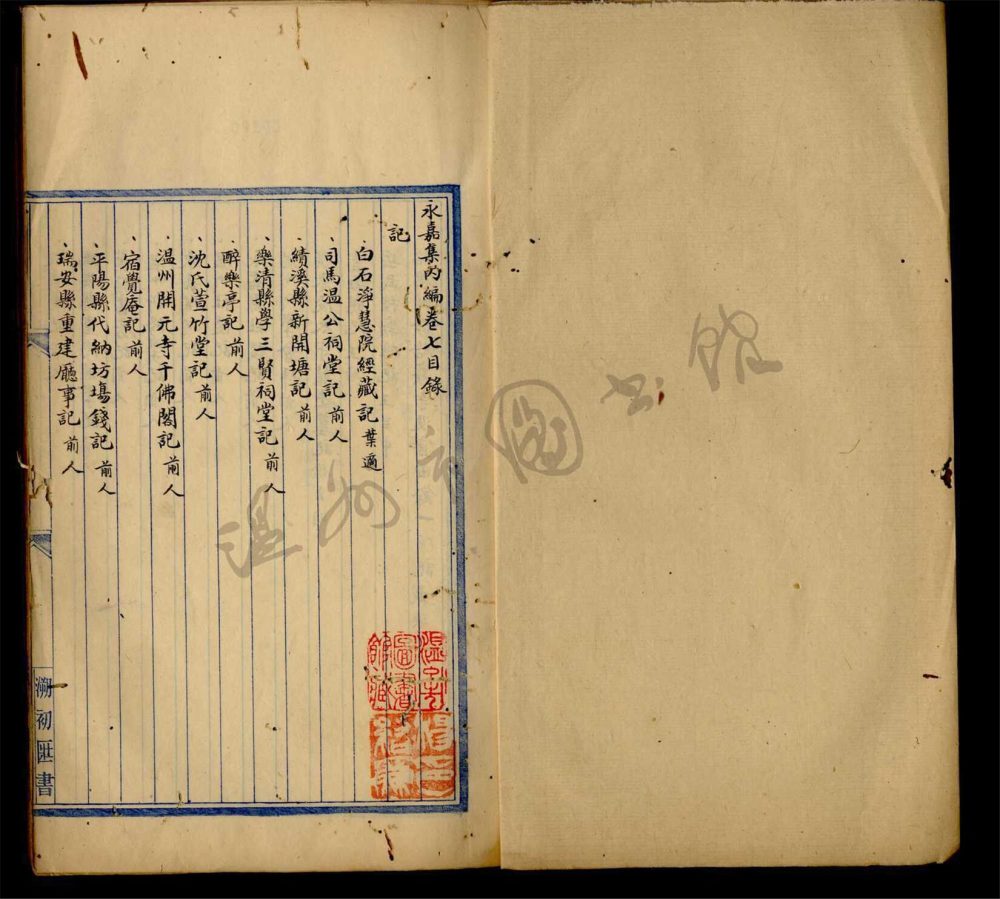 永嘉集内編卷七目錄
記
白石淨慧院經藏記 葉適
司馬温公祠堂記 前人
績溪縣新開塘記 前人
樂清縣學三賢祠堂記 前人
醉樂亭記 前人
沈氏萱竹堂記 前人
温州開元寺千佛閣記 前人
宿覺庵記 前人
平陽縣代納坊塲錢記 前人
瑞安縣重建廳事記 前人
溯初匯書
温州圖書館藏
温州市圖书館